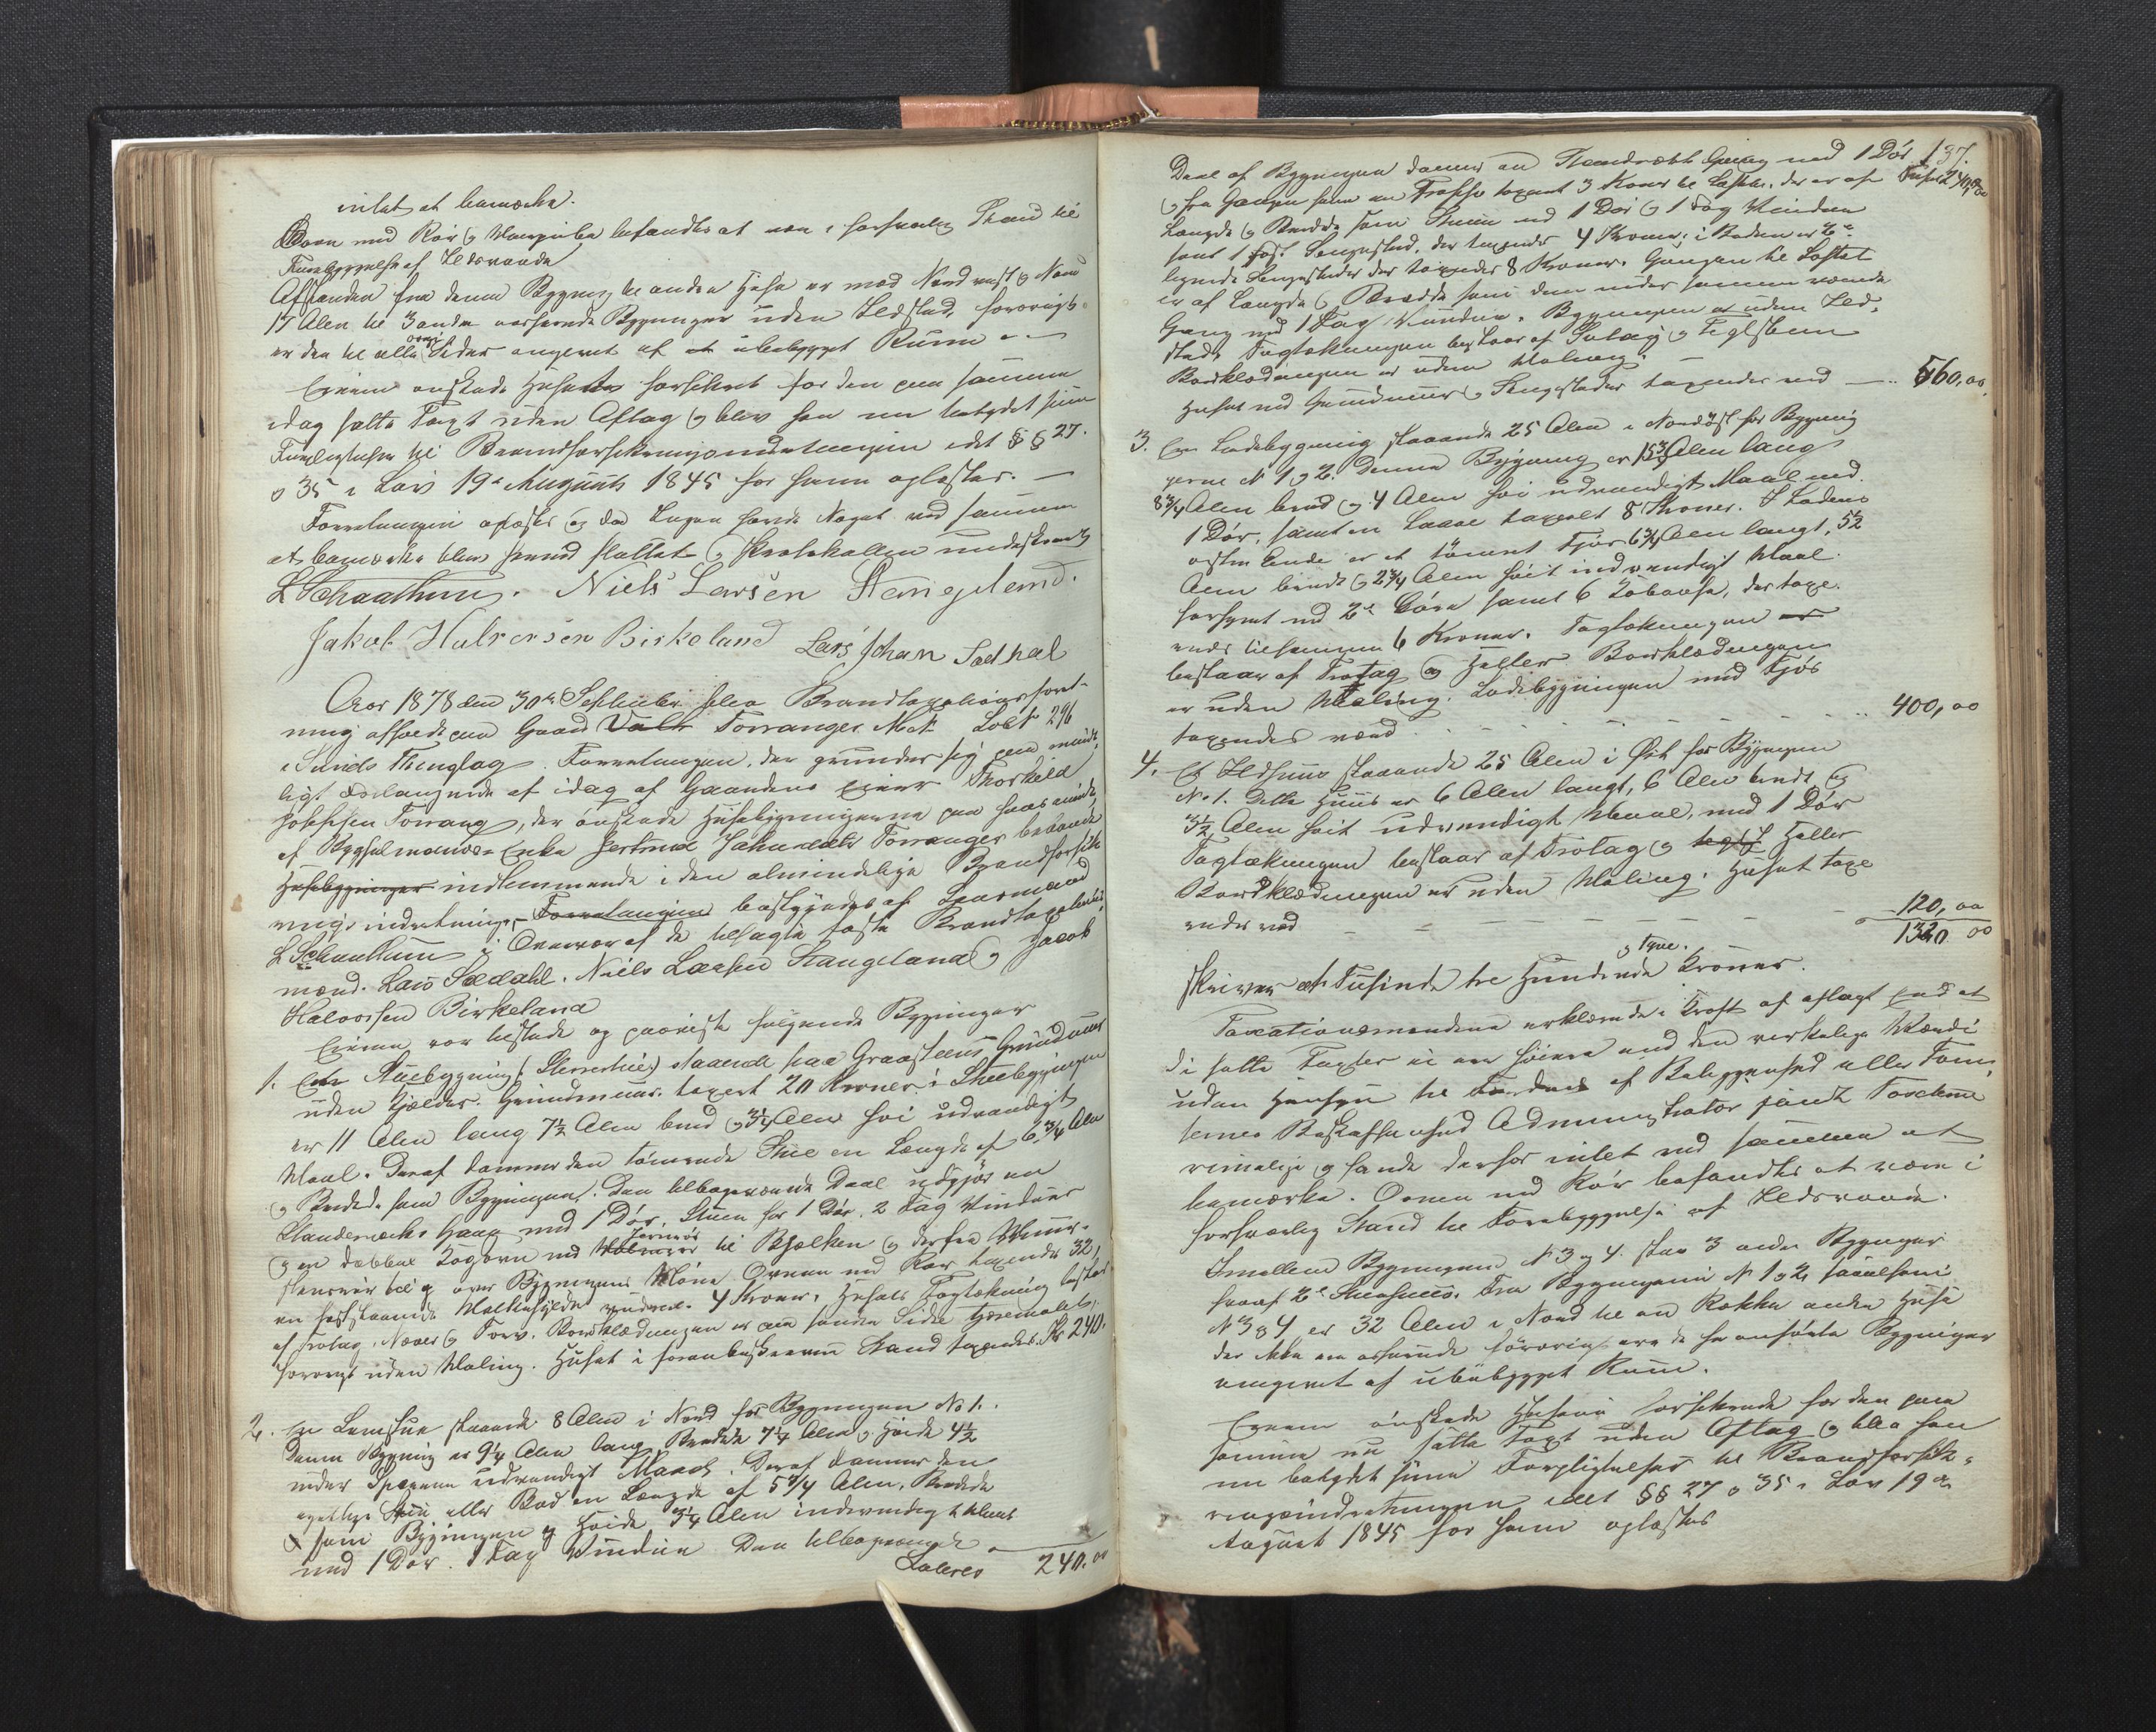 intet at bemærke.
Ovnen med Rør og Murpibe befandtes at være i forsvarlig Stand til
Forebyggelse af Ildsvaade
Afstanden fra denne Bygning til andre Huse er mod Nordvest og Nord
17 Alen til 3 andre Bygninger uden Ildsted, forøvrigt
er den til alle øvrige Sider omgivet af ubebygget Rum
Eieren ønskede Husets forsikret for den paa samme
idag satte Taxt uden Aftag og blev han nu betydet sine
Forpligtelser til Brandforsikringsindretningen idet §§ 27
og 35 i Lov 19de August 1845 for ham oplæstes. —
Forretningen oplæstes og da Ingen havde Noget ved samme
at bemærke blev den sluttet og Protokollen underskrevet
L Schaathun. Niels Larsen Stangeland.
Jakob Halvorsen Birkeland Lars Johan Sædhal
Aar 1878 den 30te September blev Brandtaxationsforret-
ning afholdt paa Gaard Torranger Mat. Løb N 296
i Sunds Thinglag. Forretningen, der grunder sig paa mundt-
ligt Forlangende af idag af Gaardens Eier Thorkild
Torrang, der ønskede Husebygningerne paa
af Bygselmands-Enke Gertrud Torranger
Husebygninger indlemmede i den almindelige Brandforsik-
ringsindretning. Forretningen bestyredes af Lensmand
L Schaathun i Overvær af de tilsagte faste Brandtaxations-
mænd Lars Sædahl. Niels Larsen Stangeland og Jacob
Halvorsen Birkeland
Eieren var tilstede og paaviste følgende Bygninger
1. En Stuebygning staaende paa Graasteens Grundmuur
uden Kjelder. Grundmuur taxert 20 Kroner. Stuebygningen
er 11 Alen lang 7½ Alen bred og 3¼ Alen høi udvendigt
Maal. Deraf danner den tømrede Stue en Længde af 6¾ Alen
og Bredde som Bygningen. Den tilbageværende Deel udgjør en
Standerværks Gang med 1 Dør. Stuen har 1 Dør. 2 Fag Vinduer
og en dobbel Kogovn med Jernrør til Bjælken og derfra Muur-
steensrør til og over Bygningens Møne Ovnen med Rør taxeredes 32,
en faststaaende Melkehylde 4 Kroner. Husets Tagtækning bestaar
af Trotag, Næver og Torv. Bordklædningen er paa
forøvrigt uden Maling. Huset i foranbeskrevne Stand taxeredes Kr 240.
2. En staaende 8 Alen i Nord for Bygningen No 1.
Denne Bygning er 9¼ Alen lang Bredde 7¼ Alen og Høide 4½
under Spærrene udvendigt Maal. Deraf danner den
egentlige Stue eller Bod en Længde af 5¾ Alen, Bredde
som Bygningen og Høide 3¼ Alen indvendigt Maal
med 1 Dør. 1 Fag Vindue Den tilbageværende
Lateres 240.00
137.
Deel af Bygningen danner en Standværks Gang med 1 Dør
og fra Gangen fører en Trappe taxeret 3 Kroner til Loftet, der er af Transp. 240,00
Længde og Bredde som Stuen med 1 Dør og 1 Fag Vinduer
samt 1 fast Sengested, der taxeredes 4 Kroner; i Boden er 2de
lignende Sengesteder der taxeredes 8 Kroner. Gangen til Loftet
er af Længde og Bredde som den under samme værende
Gang med 1 Fag Vinduer. Bygningen er uden Ild-
sted. Tagtækningen bestaar af Sutag og Teglsteen
Bordklædningen er uden Maling.
Huset med Grundmuur og Sengesteder taxeredes ved — 560,00
3. En Ladebygning staaende 25 Alen i Nordøst for Bygnin-
gerne N 1 og 2. Denne Bygning er 15¾ Alen lang
8¾ Alen bred og 4 Alen høi udvendigt Maal med
1 Dør, samt en Laave taxeret 8 Kroner. I Ladens
østre Ende er et tømret Fjøs 6¾ Alen langt, 5½
Alen bredt og 2¾ Alen høit indvendigt Maal
forsynet med 2de Døre samt 6 Kobaase, der taxe-
redes tilsammen 6 Kroner. Tagtækningen
bestaar af Trotag og Heller Bordklædningen
er uden Maling. Ladebygningen med Fjøs
taxeredes værd 400,00
4. Et Ildhuus staaende 25 Alen i Øst for Bygningen
No 1. Dette Huus er 6 Alen langt, 6 Alen bredt og
3½ Alen høit udvendigt Maal, med 1 Dør
Tagtækningen bestaar af Trotag og Heller
Bordklædningen er uden Maling. Huset taxe-
redes ved 120,00
1320 00
skriver et Tusinde tre Hundrede og Tyve Kroner.
Taxationsmændene erklærede i Kraft af aflagt Eed at
de satte Taxter ei ere høiere end den virkelige Værdi
uden Hensyn til Fordeel af Beliggenhed eller Tom-
ternes Beskaffenhed Administrator fandt Taxterne
rimelige og havde derfor intet ved samme at
bemærke. Ovnen med Rør befandtes at være i
forsvarlig Stand til Forebyggelse af Ildsvaade.
Imellem Bygningerne N 3 og 4. staa 3 andre Bygninger
hvoraf 2de Stuehuse. Fra Bygningerne N 1 og 2 saavelsom
N 3 og 4 er 32 Alen i Nord til en Række andre Huse
der ikke ere forøvrigt ere de her anførte Bygninger
omgivet af ubebygget Rum.
Eieren ønskede Husene forsikrede for den paa
samme nu satte Taxt uden Aftag og blev han
nu betydet sine Forpligtelser til Brandforsik-
ringsindretningen idet §§ 27 og 35 i Lov 19de
August 1845 for ham oplæstes